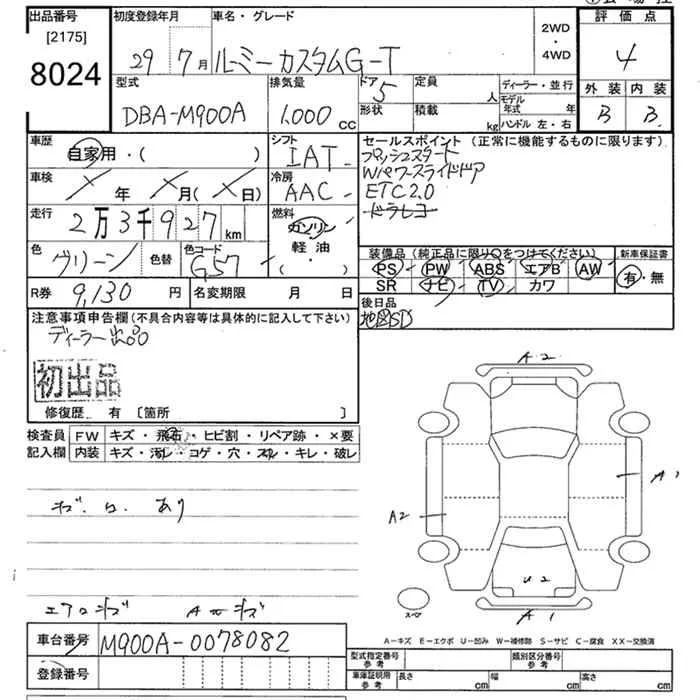 出品番号
[2175]
8024
初度登録年月
29 7月
車名・グレード
ルーミーカスタムG-T
2WD
・
4WD
評価点
4
型式
DBA-M900A
排気量
1,000 cc
ドア 5
形状
定員 人
積載 kg
ディーラー・並行
モデル年式 年
ハンドル 左・右
外装 内装
B B
車歴
自家用・( )
シフト
IAT
セールスポイント (正常に機能するものに限ります)
プッシュスタート
Wパワースライドドア
ETC2.0
ドラレコ
車検
年 月( 日)
冷房
AAC
走行
2万3千927km
燃料
ガソリン
軽・油
・( )
色
グリーン
色替
色コード
G57
装備品(純正品に限り○をつけてください)
PS PW ABS エアB AW
SR ナビ TV カワ
新車保証書
有・無
R券 9,130 円
名変期限 月 日
後日品
地図SD
注意事項申告欄(不具合内容等は具体的に記入して下さい)
ディーラー出品
初出品
修復歴 有 [箇所 ]
検査員記入欄
FW キズ・飛石・ヒビ割・リペア跡・×要
内装 キズ・汚れ・コゲ・穴・スレ・キレ・破レ
あり
エアロキズ
キズ
A2
A1
A2
U2
A1
スペア
A−キズ E−エクボ U−凹み W−補修跡 S−サビ C−腐食 XX−交換済
車台番号 M900A-0078082
登録番号
型式指定番号 参考
類別区分番号 参考
車庫証明用 参考
長さ cm 幅 cm 高さ cm